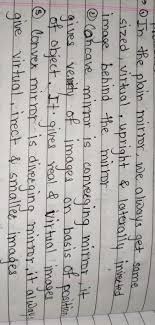 ① In the plain mirror, we always get same
sized, virtual, upright & laterally inverted
image behind the mirror
② Concave mirror is converging mirror, it
gives of images on basis of position
of object. It gives real & virtual images
③ Convex mirror is diverging mirror, it always
give virtual, irect & smaller images